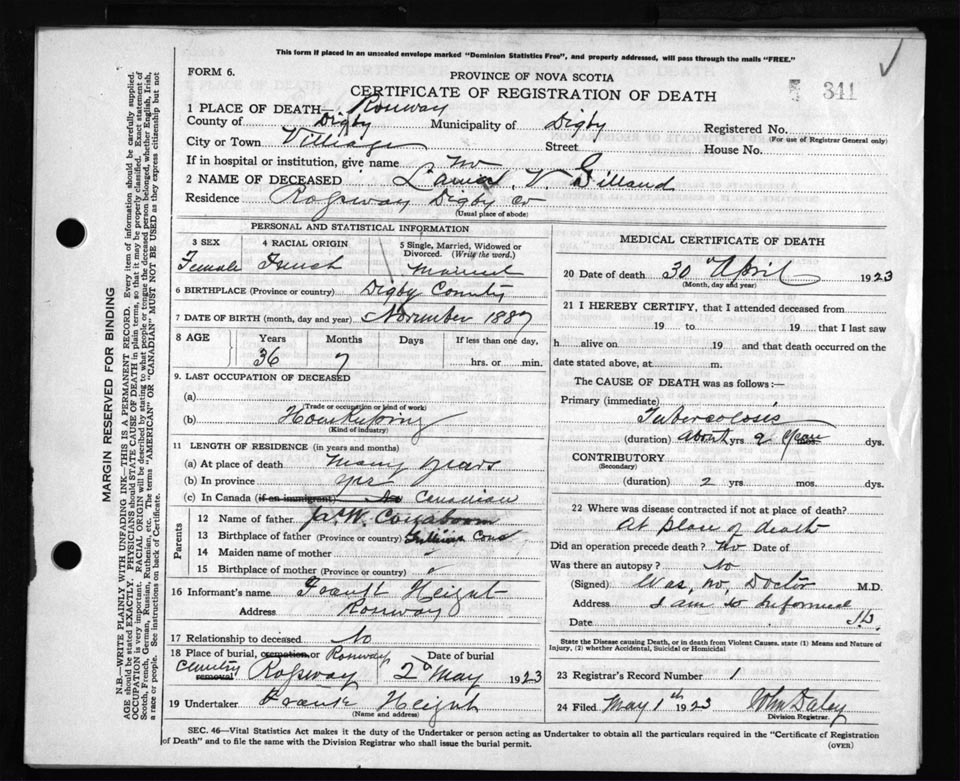 This form if placed in an unsealed envelope marked "Dominion Statistics Free", and properly addressed, will pass through the mails "FREE."
FORM 6.
PROVINCE OF NOVA SCOTIA
CERTIFICATE OF REGISTRATION OF DEATH
341
1 PLACE OF DEATH— Rossway
County of Digby Municipality of Digby Registered No.
(For use of Registrar General only)
City or Town Village Street House No.
If in hospital or institution, give name No
2 NAME OF DECEASED V. Gilland
Residence Rossway Digby Co
(Usual place of abode)
PERSONAL AND STATISTICAL INFORMATION
3 SEX 4 RACIAL ORIGIN 5 Single, Married, Widowed or Divorced. (Write the word.)
Female French Married
6 BIRTHPLACE (Province or country) Digby County
7 DATE OF BIRTH (month, day and year) November 1887
8 AGE Years Months Days If less than one day,
36 7 hrs. or min.
9. LAST OCCUPATION OF DECEASED
(a)
(Trade or occupation or kind of work)
(b) Housekeeping
(Kind of industry)
11 LENGTH OF RESIDENCE (in years and months)
(a) At place of death many years
(b) In province yes
(c) In Canada (if an immigrant) No Canadian
Parents
12 Name of father Ja. W.
13 Birthplace of father (Province or country)
14 Maiden name of mother
15 Birthplace of mother (Province or country)
16 Informant's name Frank Height
Address Rossway
17 Relationship to deceased No
18 Place of burial, cremation or removal Rossway Date of burial
Cemetry Rossway 2d May 1923
19 Undertaker Frank Height
(Name and address)
MEDICAL CERTIFICATE OF DEATH
20 Date of death 30 April 1923
(Month, day and year)
21 I HEREBY CERTIFY, that I attended deceased from
19 to 19 that I last saw
h alive on 19 and that death occurred on the
date stated above, at m.
The CAUSE OF DEATH was as follows:—
Primary (immediate)
Tuberculosis
(duration) about yrs 2 years mos. dys.
CONTRIBUTORY
(Secondary)
(duration) 2 yrs. mos. dys.
22 Where was disease contracted if not at place of death?
At place of death
Did an operation precede death? No Date of
Was there an autopsy? No
(Signed) Was, no, Doctor M.D.
Address I am so Informed
Date
State the Disease causing Death, or in death from Violent Causes, state (1) Means and Nature of Injury, (2) whether Accidental, Suicidal or Homicidal
23 Registrar's Record Number 1
24 Filed May 1th 1923 John Daley
Division Registrar.
SEC. 46—Vital Statistics Act makes it the duty of the Undertaker or person acting as Undertaker to obtain all the particulars required in the "Certificate of Registration
of Death" and to file the same with the Division Registrar who shall issue the burial permit.
(OVER)
MARGIN RESERVED FOR BINDING
N.B.—WRITE PLAINLY WITH UNFADING INK—THIS IS A PERMANENT RECORD. Every item of information should be carefully supplied.
AGE should be stated EXACTLY. PHYSICIANS should STATE CAUSE OF DEATH in plain terms, so that it may be properly classified. Exact statement of
OCCUPATION is very important. RACIAL ORIGIN will be described by stating to what people or tongue the deceased person belonged, whether English, Irish,
Scotch, French, German, Russian, Ruthenian, etc. The terms "AMERICAN" or "CANADIAN" MUST NOT BE USED as they express citizenship but not
a race or people. See instructions on back of Certificate.